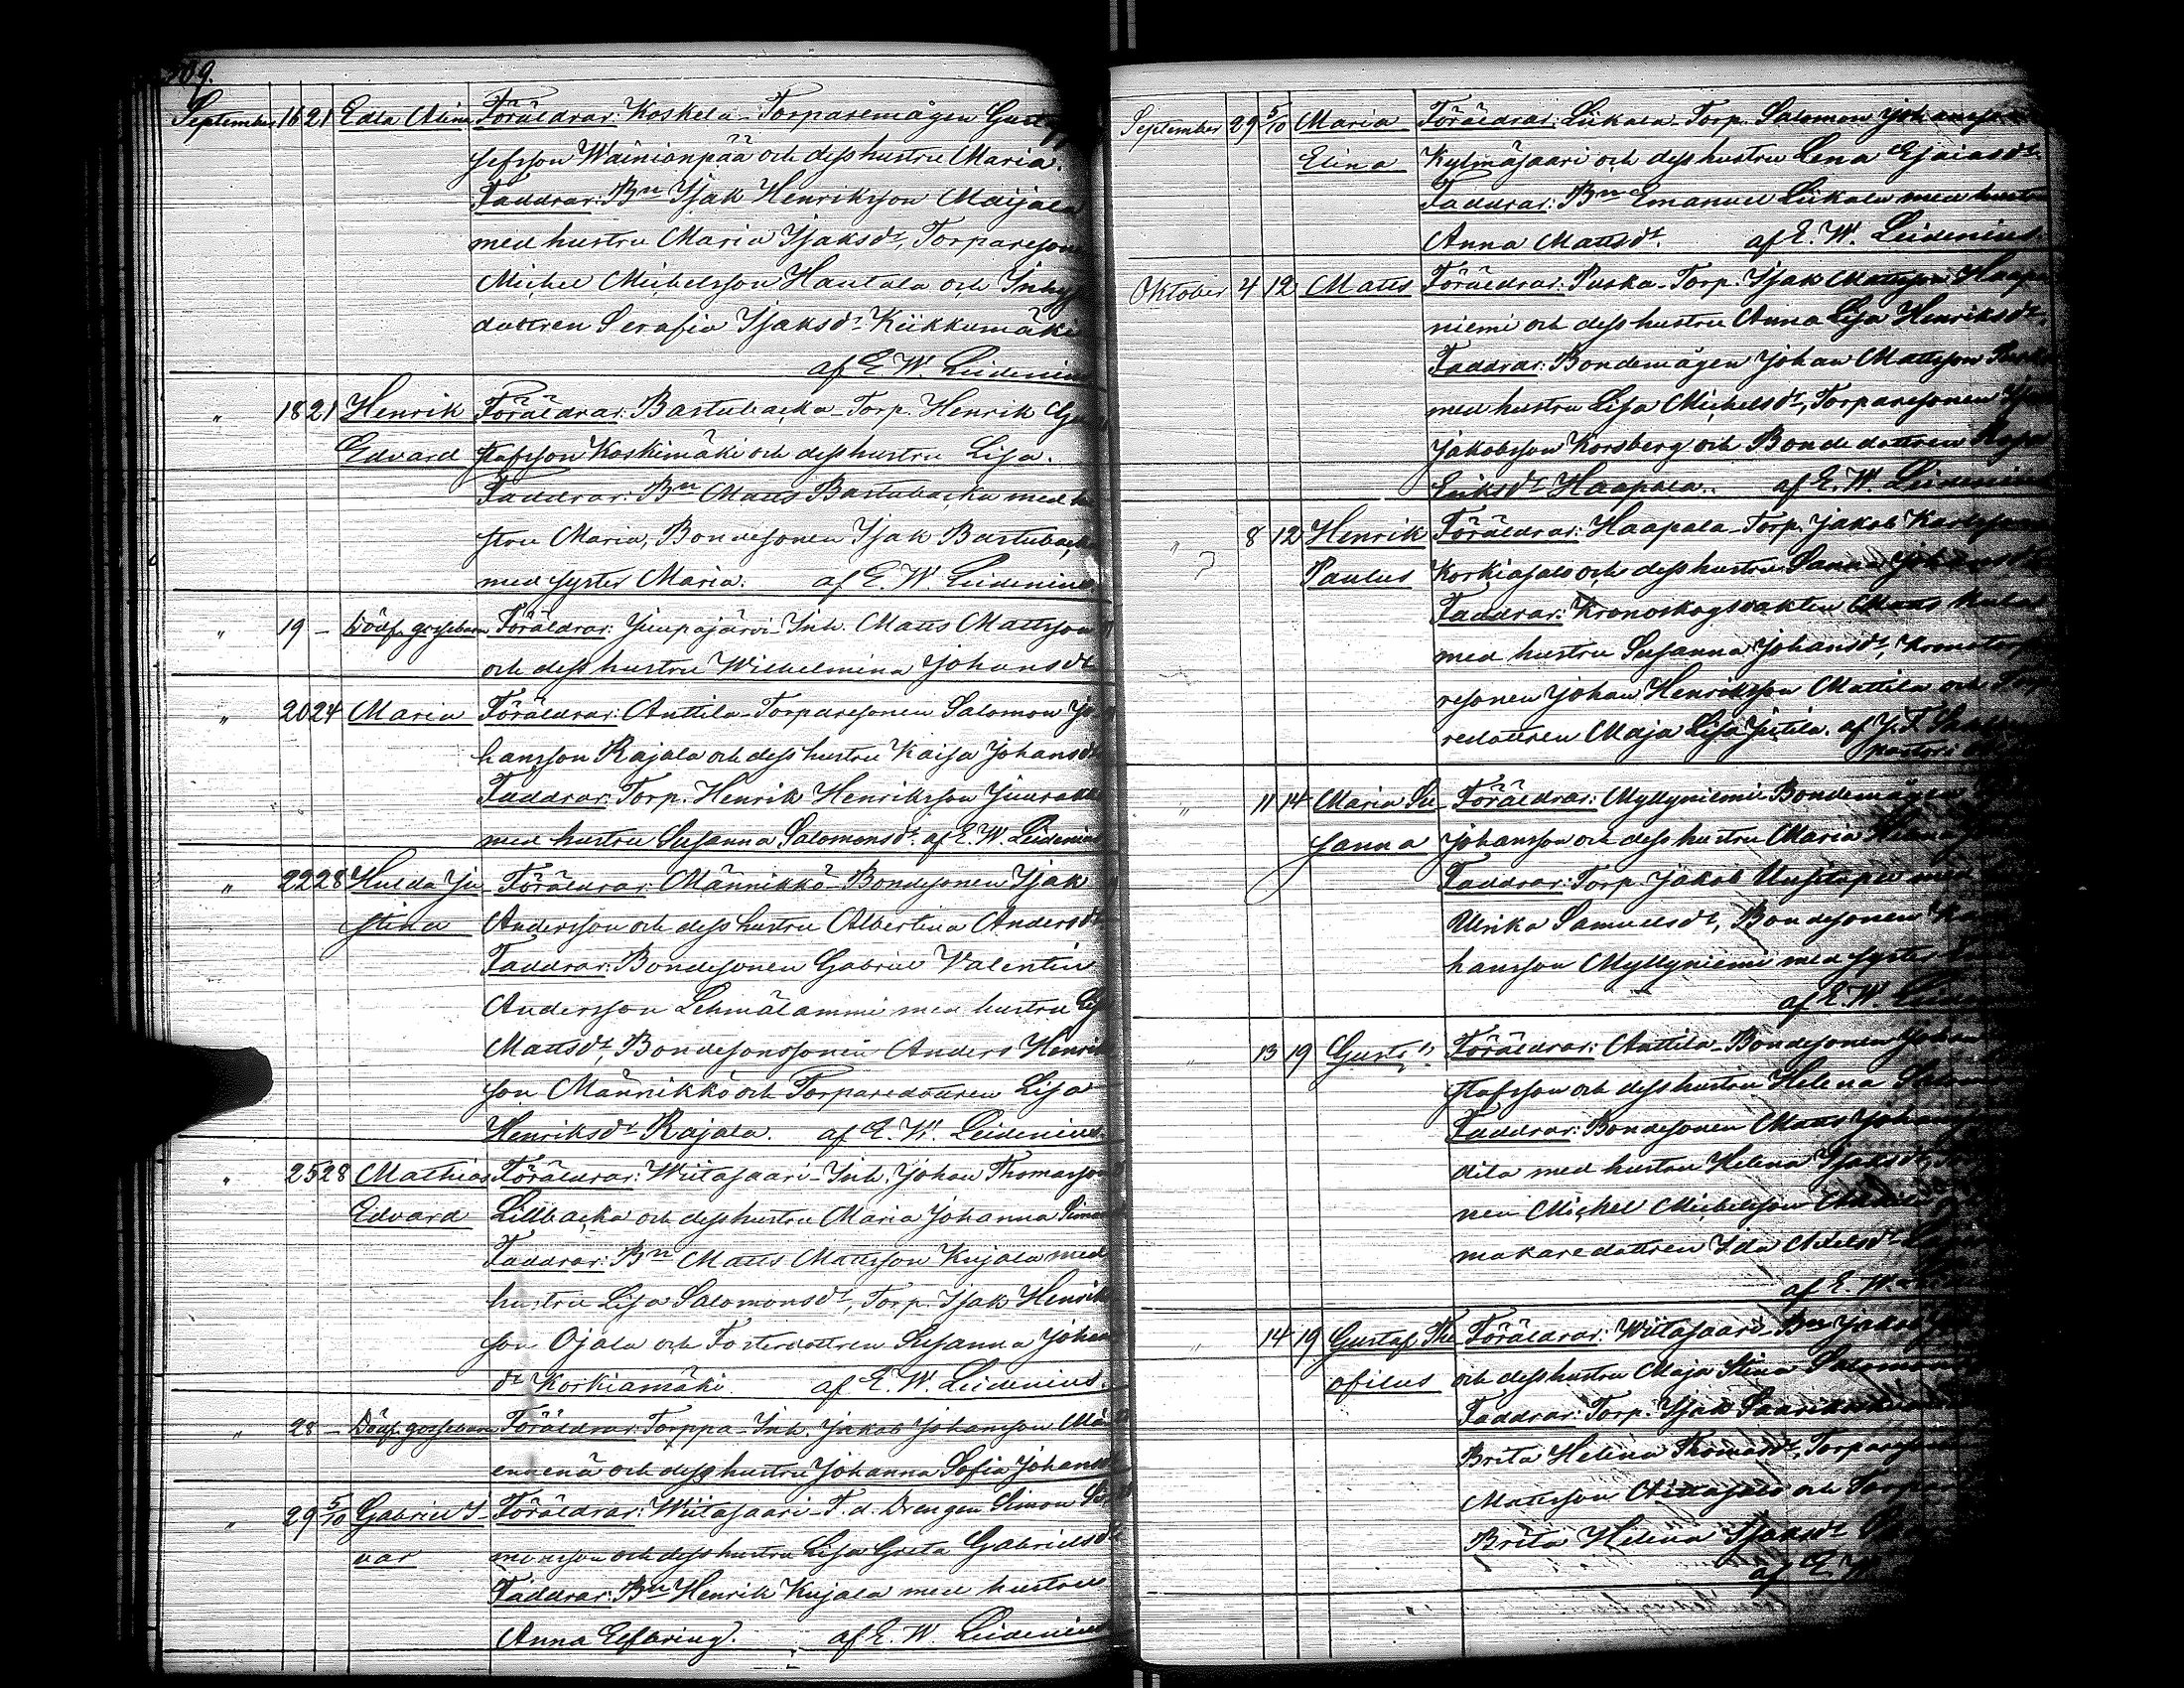 109.
September 16 21 Edla Alina Föräldrar: Koskela-Torparemågen Gust
sefsson Wainionpää och dess hustru Maria.
Faddrar: Bn Isak Henriksson Maijala
med hustru Maria Isaksdr, Torpareson
Michel Michelsson Hautala och Inhys
dottren Serafia Isaksdr Kiikkumäki
af E. W. Leidenius
" 18 21 Henrik Föräldrar: Bastubacka-Torp. Henrik Gu
Edvard stafsson Koskimäki och dess hustru Lisa.
Faddrar: Bn Matts Bastubacka med hu
stru Maria, Bondesonen Isak Bastubacka
med syster Maria. af E. W. Leidenius
" 19 – Dödf. gossebarn Föräldrar: Juupajärvi-Inh. Matts Mattsson
och dess hustru Wilhelmina Johansdr
" 20 24 Maria Föräldrar: Anttila-Torparesonen Salomon Jo
hansson Rajala och dess hustru Kaisa Johansdr
Faddrar: Torp. Henrik Henriksson
med hustru Susanna Salomonsdr. af E. W. Leidenius
" 22 28 Hulda Ju- Föräldrar: Männikkö-Bondesonen Isak
stina Andersson och dess hustru Albertina Andersdr
Faddrar: Bondesonen Gabriel Valentin
Andersson Lehmälammi med hustru
Mattsdr, Bondesonssonen Anders Henrik
son Männikkö och Torparedottren Lisa
Henriksdr Rajala. af E. W. Leidenius.
" 25 28 Mathias Föräldrar: Wiitasaari-Inh. Johan Thomasson
Edvard Lillbacka och dess hustru Maria Johanna
Faddrar: Bn Matts Mattsson Kujala med
hustru Lisa Salomonsdr, Torp. Isak Henriks
son Ojala och Fosterdottren Susanna Johans
dr Korkiamäki. af E. W. Leidenius.
" 28 – Dödf. gossebarn Föräldrar: Torppa-Inh. Jakob Johansson
och dess hustru Johanna Sofia Johansdr
" 29 5/10 Gabriel I- Föräldrar: Wiitasaari-F. d. Drengen Simon Si
var monsson och dess hustru Lisa Greta Gabrielsdr
Faddrar: Bn Henrik Kujala med hustru
Anna Elfbring. af E. W. Leidenius
September 29 5/10 Maria Föräldrar: Liikala-Torp. Salomon Johansson
Elina Kylmäsaari och dess hustru Lena Esaiasdr.
Faddrar: Bn Emanuel Liikala med hustru
Anna Mattsdr. af E. W. Leidenius
Oktober 4 12 Matts Föräldrar: Puska-Torp. Isak Mattsson Haapa
niemi och dess hustru Anna Lisa Henriksdr.
Faddrar: Bondemågen Johan Mattsson
med hustru Lisa Michelsdr, Torparesonen
Jakobsson Korsberg och Bondedottren
Eriksdr Haapala. af E. W. Leidenius
" 8 12 Henrik Föräldrar: Haapala-Torp. Jakob Karlsson
Paulus Korkiasalo och dess hustru Sanna Johansdr
Faddrar: Kronoskogsvakten Matts
med hustru Susanna Johansdr, Kronotorpa
resonen Johan Henriksson Mattila och Torpa
redottren Maja Lisa Jutila. af J. F.
" 11 14 Maria Su- Föräldrar: Myllyniemi Bondemågen
sanna Johansson och dess hustru Maria
Faddrar: Torp. Jakob Uusitupa med
Ulrika Samuelsdr, Bondesonen
hansson Myllyniemi med syster
af E. W. Leidenius
" 13 19 Gustaf Föräldrar: Anttila-Bondesonen Johan
stafsson och dess hustru Helena
Faddrar: Bondesonen Matts Johansson
tila med hustru Helena Isaksdr,
nen Michel Michelsson
makaredottren Ida
af E. W.
" 14 19 Gustaf The Föräldrar: Wiitasaari-Bn Jakob
ofilus och dess hustru Maja Stina Salomonsdr
Faddrar: Torp. Isak
Brita Helena Thomasdr, Torpareson
Mattsson och Torpare
Brita Helena Isaksdr
af E. W.